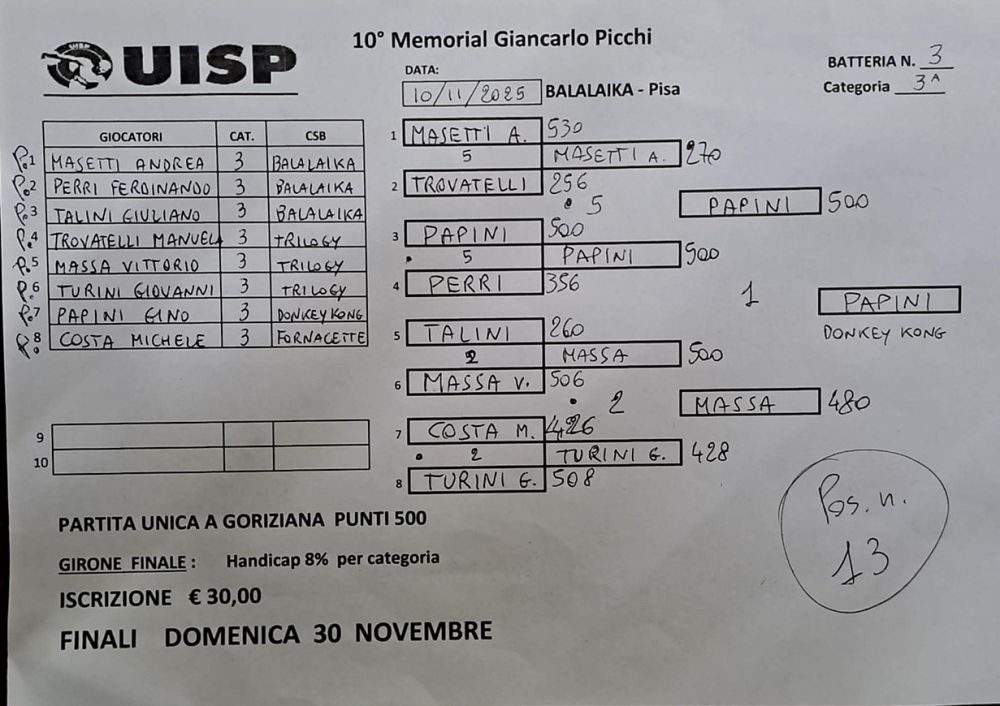 UISP
10° Memorial Giancarlo Picchi
DATA:
10/11/2025 BALALAIKA - Pisa
BATTERIA N. 3
Categoria 3ª
GIOCATORI CAT. CSB
P.1 MASETTI ANDREA 3 BALALAIKA
P.2 PERRI FERDINANDO 3 BALALAIKA
P.3 TALINI GIULIANO 3 BALALAIKA
P.4 TROVATELLI MANUEL 3 TRILOGY
P.5 MASSA VITTORIO 3 TRILOGY
P.6 TURINI GIOVANNI 3 TRILOGY
P.7 PAPINI GINO 3 DONKEY KONG
P.8 COSTA MICHELE 3 FORNACETTE
9
10
1 MASETTI A. 530
5 MASETTI A. 270
2 TROVATELLI 256
5 PAPINI 500
3 PAPINI 500
5 PAPINI 500
4 PERRI 356
1 PAPINI
DONKEY KONG
5 TALINI 260
2 MASSA 500
6 MASSA V. 506
2 MASSA 480
7 COSTA M. 426
2 TURINI G. 428
8 TURINI G. 508
Pos. n.
13
PARTITA UNICA A GORIZIANA PUNTI 500
GIRONE FINALE : Handicap 8% per categoria
ISCRIZIONE € 30,00
FINALI DOMENICA 30 NOVEMBRE